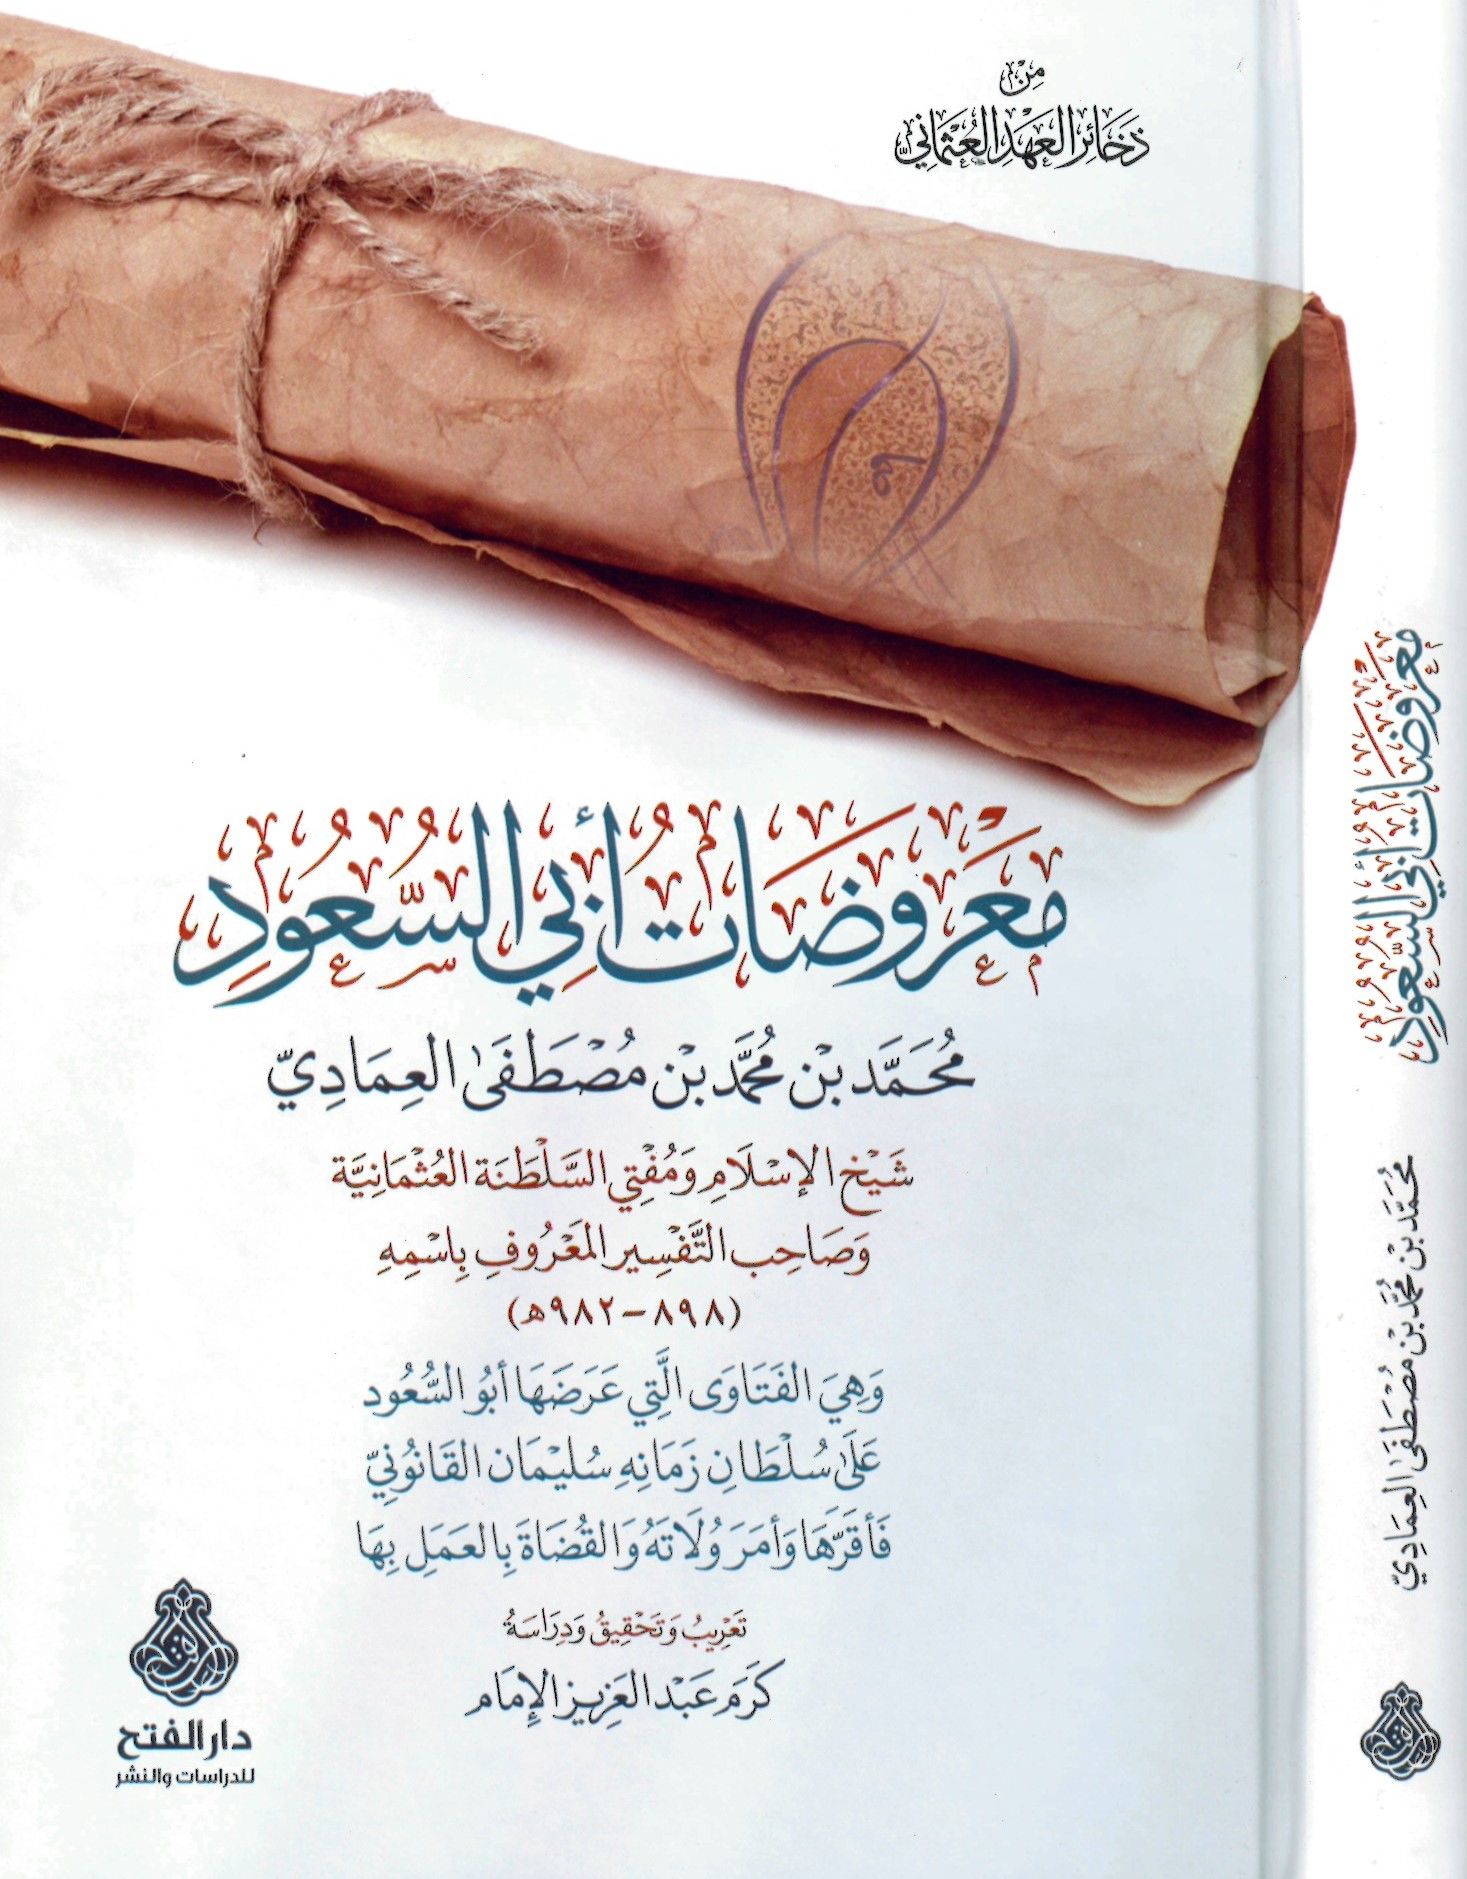 مِنْ
ذَخَائِرِ العَهْدِ العُثْمَانِيِّ
مَعْرُوضَاتُ أَبِي السُّعُودِ
مُحَمَّد بْن مُحَمَّد بْن مُصْطَفَىٰ العِمَادِيّ
شَيْخ الإِسْلَامِ وَمُفْتِي السَّلْطَنَة العُثْمَانِيَّة
وَصَاحِب التَّفْسِيرِ المَعْرُوفِ بِاسْمِهِ
(٨٩٨-٩٨٢هـ)
وَهِيَ الفَتَاوَى الَّتِي عَرَضَهَا أَبُو السُّعُود
عَلَىٰ سُلْطَانِ زَمَانِهِ سُلَيْمَان القَانُونِيّ
فَأَقَرَّهَا وَأَمَرَ وُلَاتَهُ وَالقُضَاةَ بِالعَمَلِ بِهَا
تَعْرِيبُ وَتَحْقِيقُ وَدِرَاسَةُ
كَرَم عَبْد العَزِيز الإِمَام
دار الفتح
للدراسات والنشر
مَعْرُوضَاتُ أَبِي السُّعُودِ
مُحَمَّد بْن مُحَمَّد بْن مُصْطَفَىٰ العِمَادِيّ